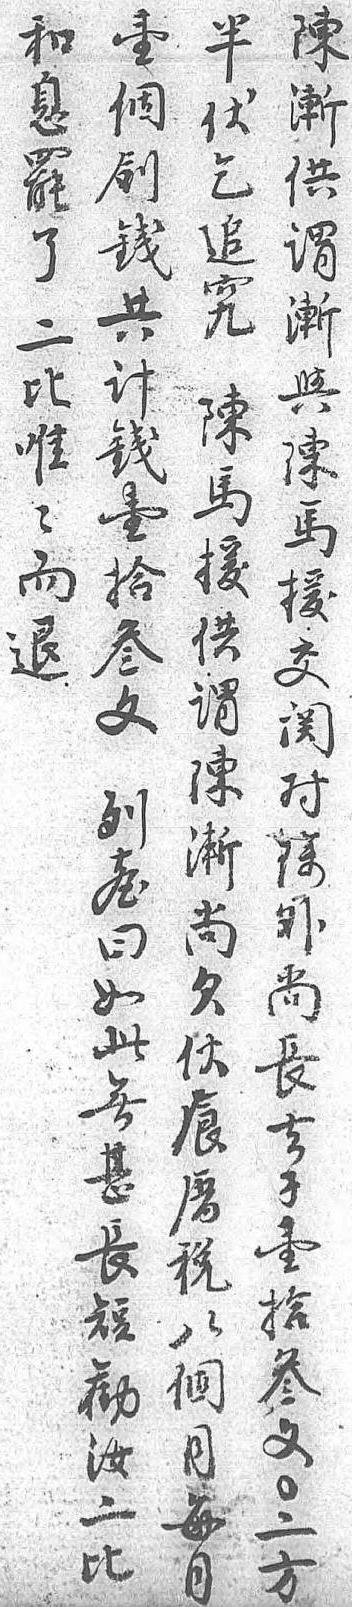 陳漸供謂漸與陳馬援交関对除外尚長去子壹拾叁文〇二方
半伏乞追究　陳馬援供謂陳漸尚欠伏食厝税八個月每月
壹個刽錢共計錢壹拾叁文　列臺曰如此無甚長短勸汝二比
和息罷了二比唯〻而退